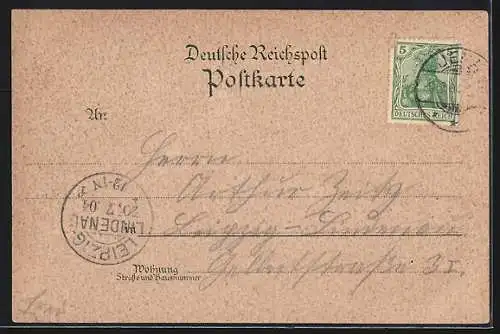 Deutsche Reichspost
Postkarte
5
DEUTSCHES REICH
JENA
An:
Herrn
Arthur Zeitz
Leipzig-Lindenau
LEIPZIG
LINDENAU
20.7.04
12-1N
Wohnung
Straße und Hausnummer